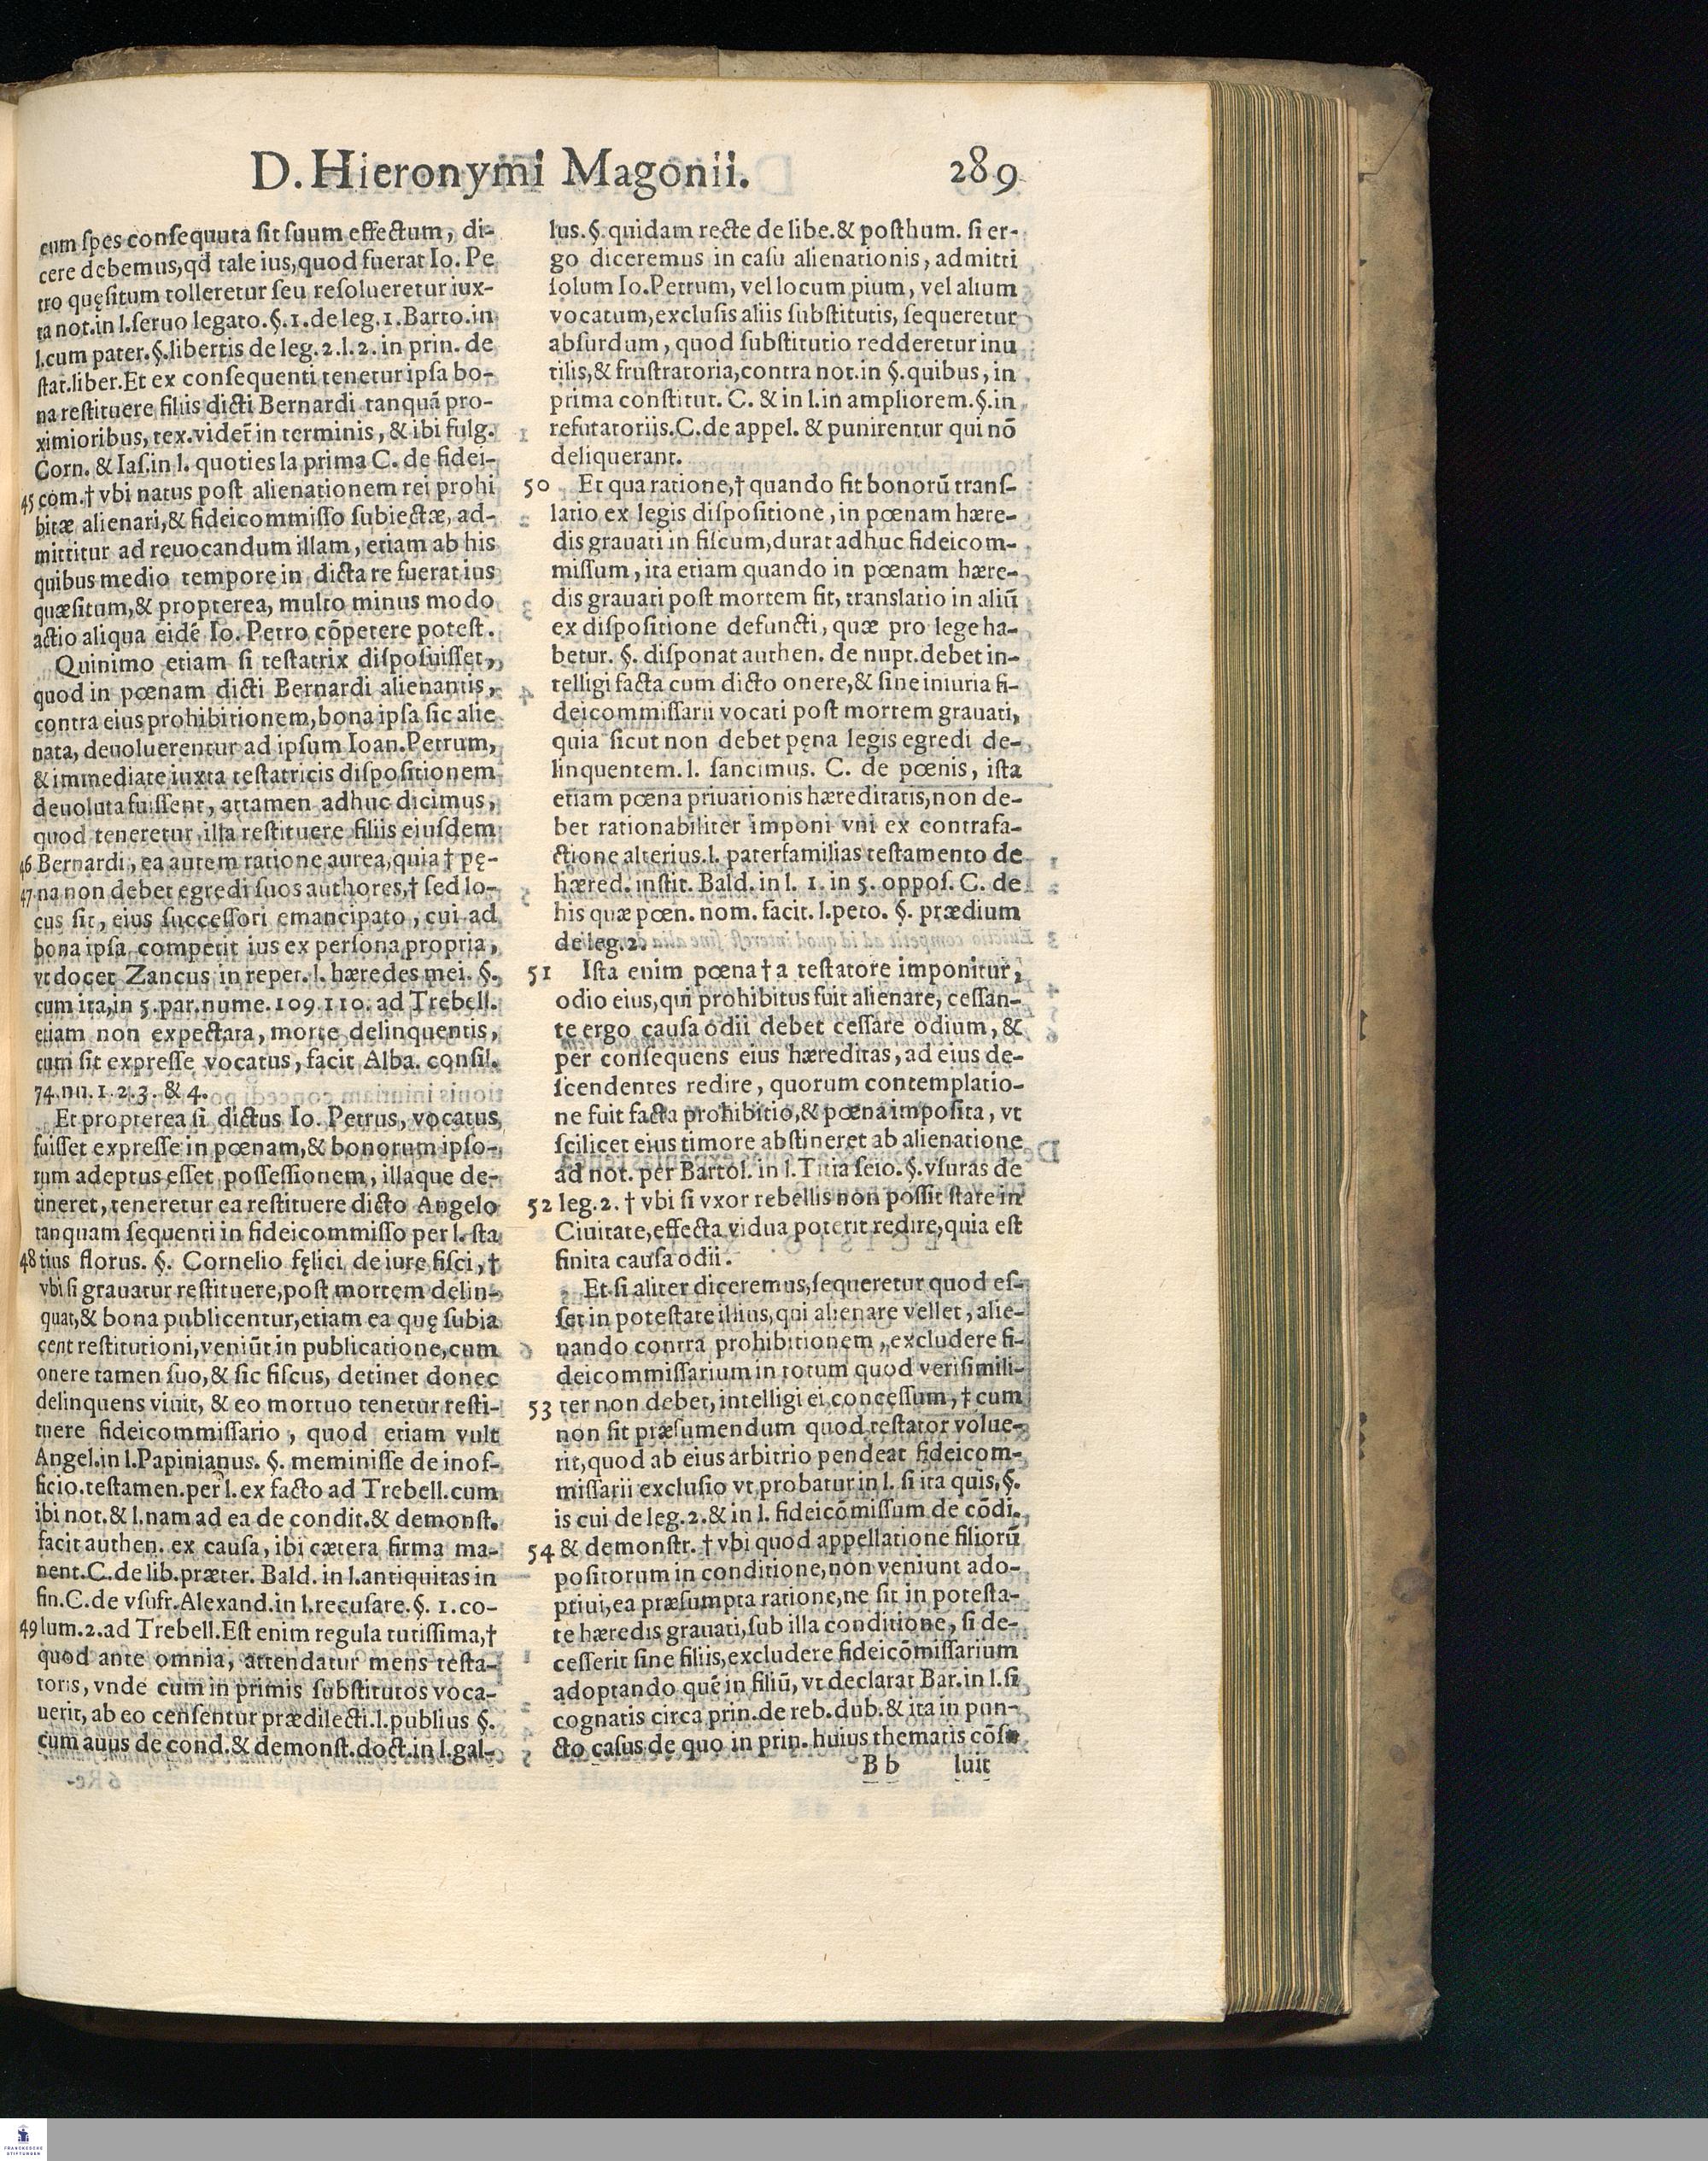 D. Hieronymi Magonii. 289
cum spes consequuta sit suum effectum, di-
cere debemus, qd tale ius, quod fuerat Io. Pe
tro quęsitum tolleretur seu resolueretur iux-
ta not. in l. seruo legato. §. 1. de leg. 1. Barto. in
l. cum pater. §. libertis de leg. 2. l. 2. in prin. de
stat. liber. Et ex consequenti tenetur ipsa bo-
na restituere filiis dicti Bernardi tanquā pro-
ximioribus, tex. videt̃ in terminis, & ibi fulg.
Corn. & Ias. in l. quoties la prima C. de fidei-
45 com. † vbi natus post alienationem rei prohi
bitæ alienari, & fideicommisso subiectæ, ad-
mittitur ad reuocandum illam, etiam ab his
quibus medio tempore in dicta re fuerat ius
quæsitum, & propterea, multo minus modo
actio aliqua eidē Io. Petro cōpetere potest.
Quinimo etiam si testatrix disposuisset,
quod in pœnam dicti Bernardi alienantis,
contra eius prohibitionem, bona ipsa sic alie
nata, deuoluerentur ad ipsum Ioan. Petrum,
& immediate iuxta testatricis dispositionem
deuoluta fuissent, attamen adhuc dicimus,
quod teneretur illa restituere filiis eiusdem
46 Bernardi, ea autem ratione aurea, quia † pę-
47 na non debet egredi suos authores, † sed lo-
cus sit, eius successori emancipato, cui ad
bona ipsa competit ius ex persona propria,
vt docet Zancus in repet. l. hæredes mei. §.
cum ita, in 5. par. nume. 109. 110. ad Trebell.
etiam non expectata, morte delinquentis,
cum sit expresse vocatus, facit Alba. consil.
74. nu. 1. 2. 3. & 4.
Et propterea si dictus Io. Petrus, vocatus
fuisset expresse in pœnam, & bonorum ipso-
rum adeptus esset possessionem, illaque de-
tineret, teneretur ea restituere dicto Angelo
tanquam sequenti in fideicommisso per l. sta
48 tius florus. §. Cornelio fęlici de iure fisci, †
vbi si grauatur restituere, post mortem delin-
quat, & bona publicentur, etiam ea quę subia
cent restitutioni, veniūt in publicatione, cum
onere tamen suo, & sic fiscus, detinet donec
delinquens viuit, & eo mortuo tenetur resti-
tuere fideicommissario, quod etiam vult
Angel. in l. Papinianus. §. meminisse de inof-
ficio. testamen. per l. ex facto ad Trebell. cum
ibi not. & l. nam ad ea de condit. & demonst.
facit authen. ex causa, ibi cætera firma ma-
nent. C. de lib. præter. Bald. in l. antiquitas in
fin. C. de vsufr. Alexand. in l. recusare. §. 1. co-
49 lum. 2. ad Trebell. Est enim regula tutissima, †
quod ante omnia, attendatur mens testa-
toris, vnde cum in primis substitutos voca-
uerit, ab eo censentur prædilecti. l. publius §.
cum auus de cond. & demonst. doct. in l. gal-
lus. §. quidam recte de libe. & posthum. si er-
go diceremus in casu alienationis, admitti
solum Io. Petrum, vel locum pium, vel alium
vocatum, exclusis aliis substitutis, sequeretur
absurdum, quod substitutio redderetur inu
tilis, & frustratoria, contra not. in §. quibus, in
prima constitut. C. & in l. in ampliorem. §. in
refutatoriis. C. de appel. & punirentur qui nō
deliquerant.
50 Et qua ratione, † quando fit bonorū trans-
latio ex legis dispositione, in pœnam hære-
dis grauati in fiscum, durat adhuc fideicom-
missum, ita etiam quando in pœnam hære-
dis grauati post mortem fit, translatio in aliū
ex dispositione defuncti, quæ pro lege ha-
betur. §. disponat authen. de nupt. debet in-
telligi facta cum dicto onere, & sine iniuria fi-
deicommissarii vocati post mortem grauati,
quia sicut non debet pęna legis egredi de-
linquentem. l. sancimus. C. de pœnis, ista
etiam pœna priuationis hæreditatis, non de-
bet rationabiliter imponi vni ex contrafa-
ctione alterius. l. paterfamilias testamento de
hæred. instit. Bald. in l. 1. in 5. oppos. C. de
his quæ pœn. nom. facit. l. peto. §. prædium
de leg. 2.
51 Ista enim pœna † a testatore imponitur,
odio eius, qui prohibitus fuit alienare, cessan-
te ergo causa odii debet cessare odium, &
per consequens eius hæreditas, ad eius de-
scendentes redire, quorum contemplatio-
ne fuit facta prohibitio, & pœna imposita, vt
scilicet eius timore abstineret ab alienatione
ad not. per Bartol. in l. Titia seio. §. vsuras de
52 leg. 2. † vbi si vxor rebellis non possit stare in
Ciuitate, effecta vidua poterit redire, quia est
finita causa odii.
Et si aliter diceremus, sequeretur quod es-
set in potestate illius, qui alienare vellet, alie-
nando contra prohibitionem, excludere fi-
deicommissarium in totum quod verisimili-
53 ter non debet, intelligi ei concessum, † cum
non sit præsumendum quod testator volue-
rit, quod ab eius arbitrio pendeat fideicom-
missarii exclusio vt probatur in l. si ita quis, §.
is cui de leg. 2. & in l. fideicōmissum de cōdi.
54 & demonstr. † vbi quod appellatione filiorū
positorum in conditione, non veniunt ado-
ptiui, ea præsumpta ratione, ne sit in potesta-
te hæredis grauati, sub illa conditione, si de-
cesserit sine filiis, excludere fideicōmissarium
adoptando quē in filiū, vt declarat Bar. in l. si
cognatis circa prin. de reb. dub. & ita in pun-
cto casus de quo in prin. huius thematis cōsu
B b luit
FRANCKESCHE
STIFTUNGEN